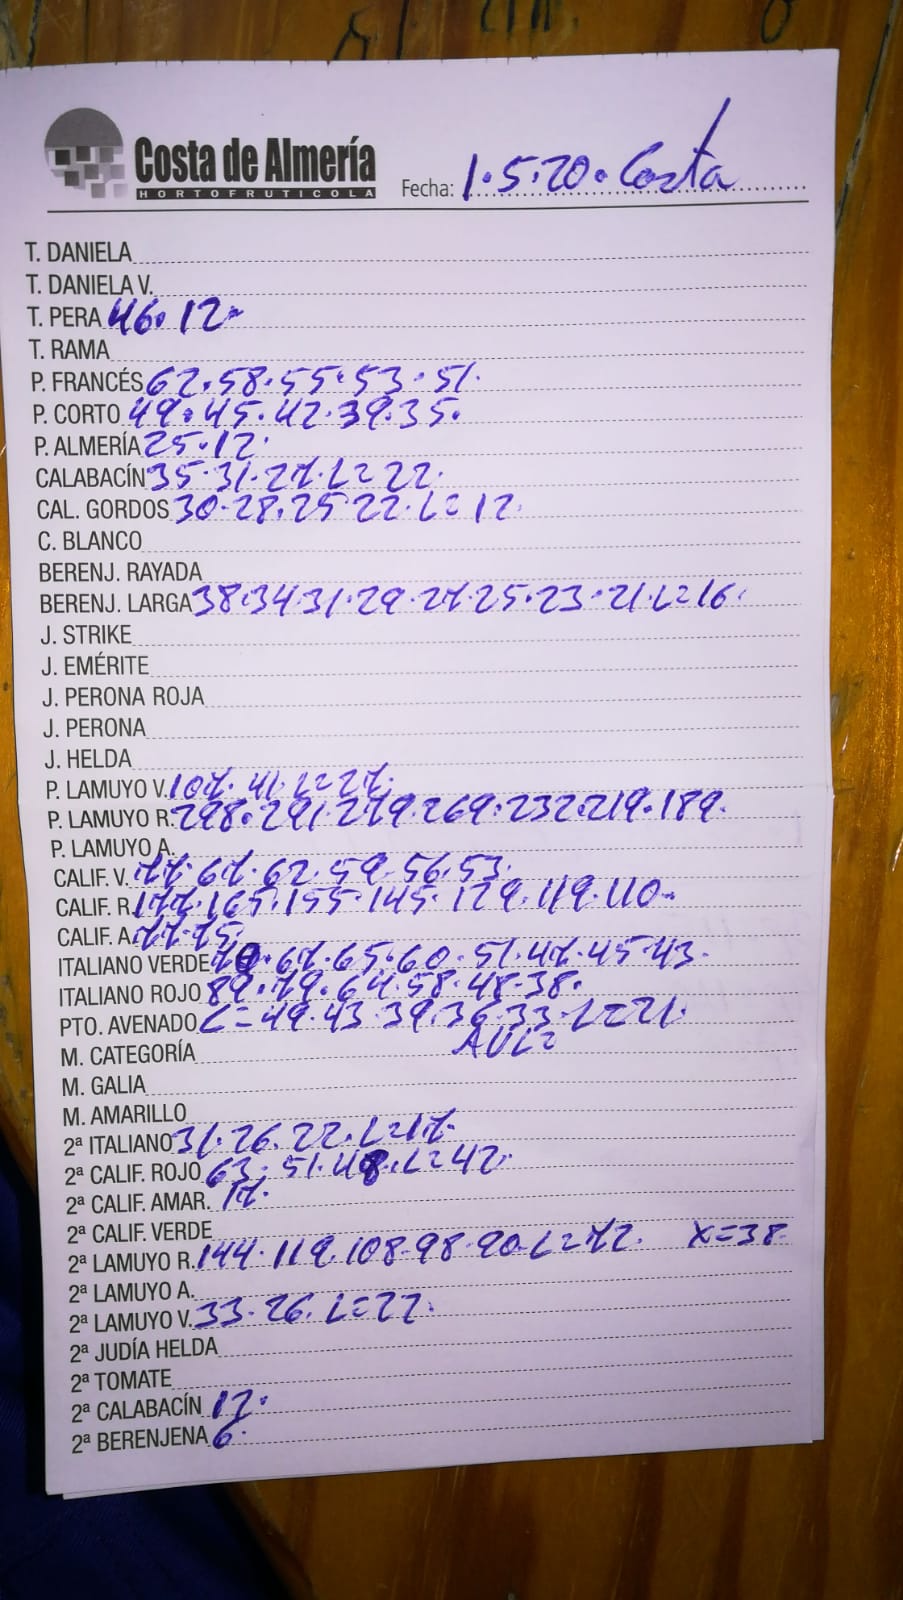 Costa de Almería
HORTOFRUTICOLA
Fecha: 1.5.20. Costa
T. DANIELA
T. DANIELA V.
T. PERA 46. 12.
T. RAMA
P. FRANCÉS 62.58.55.53.51.
P. CORTO 49.45.42.39.35.
P. ALMERÍA 25.12.
CALABACÍN 35.31.27.L=22.
CAL. GORDOS 30.28.25.22.L=12.
C. BLANCO
BERENJ. RAYADA
BERENJ. LARGA 38.34.31.29.27.25.23.21.L=16.
J. STRIKE
J. EMÉRITE
J. PERONA ROJA
J. PERONA
J. HELDA
P. LAMUYO V. 107. 41. L=27.
P. LAMUYO R. 298.291.279.269.232.219.189.
P. LAMUYO A.
CALIF. V. 77.67.62.59.56.53.
CALIF. R. 177.165.155.145.129.119.110.
CALIF. A. 77.75.
ITALIANO VERDE 67.65.60.51.47.45.43.
ITALIANO ROJO 89.79.64.58.48.38.
PTO. AVENADO L=49.43.39.36.33.L=21.
M. CATEGORÍA
M. GALIA
M. AMARILLO
2ª ITALIANO 31.26.22.L=17.
2ª CALIF. ROJO 63.51.48.L=42.
2ª CALIF. AMAR. 17.
2ª CALIF. VERDE
2ª LAMUYO R. 144.119.108.98.90.L=72. X=38.
2ª LAMUYO A.
2ª LAMUYO V. 33.26.L=22.
2ª JUDÍA HELDA
2ª TOMATE
2ª CALABACÍN 12.
2ª BERENJENA 6.